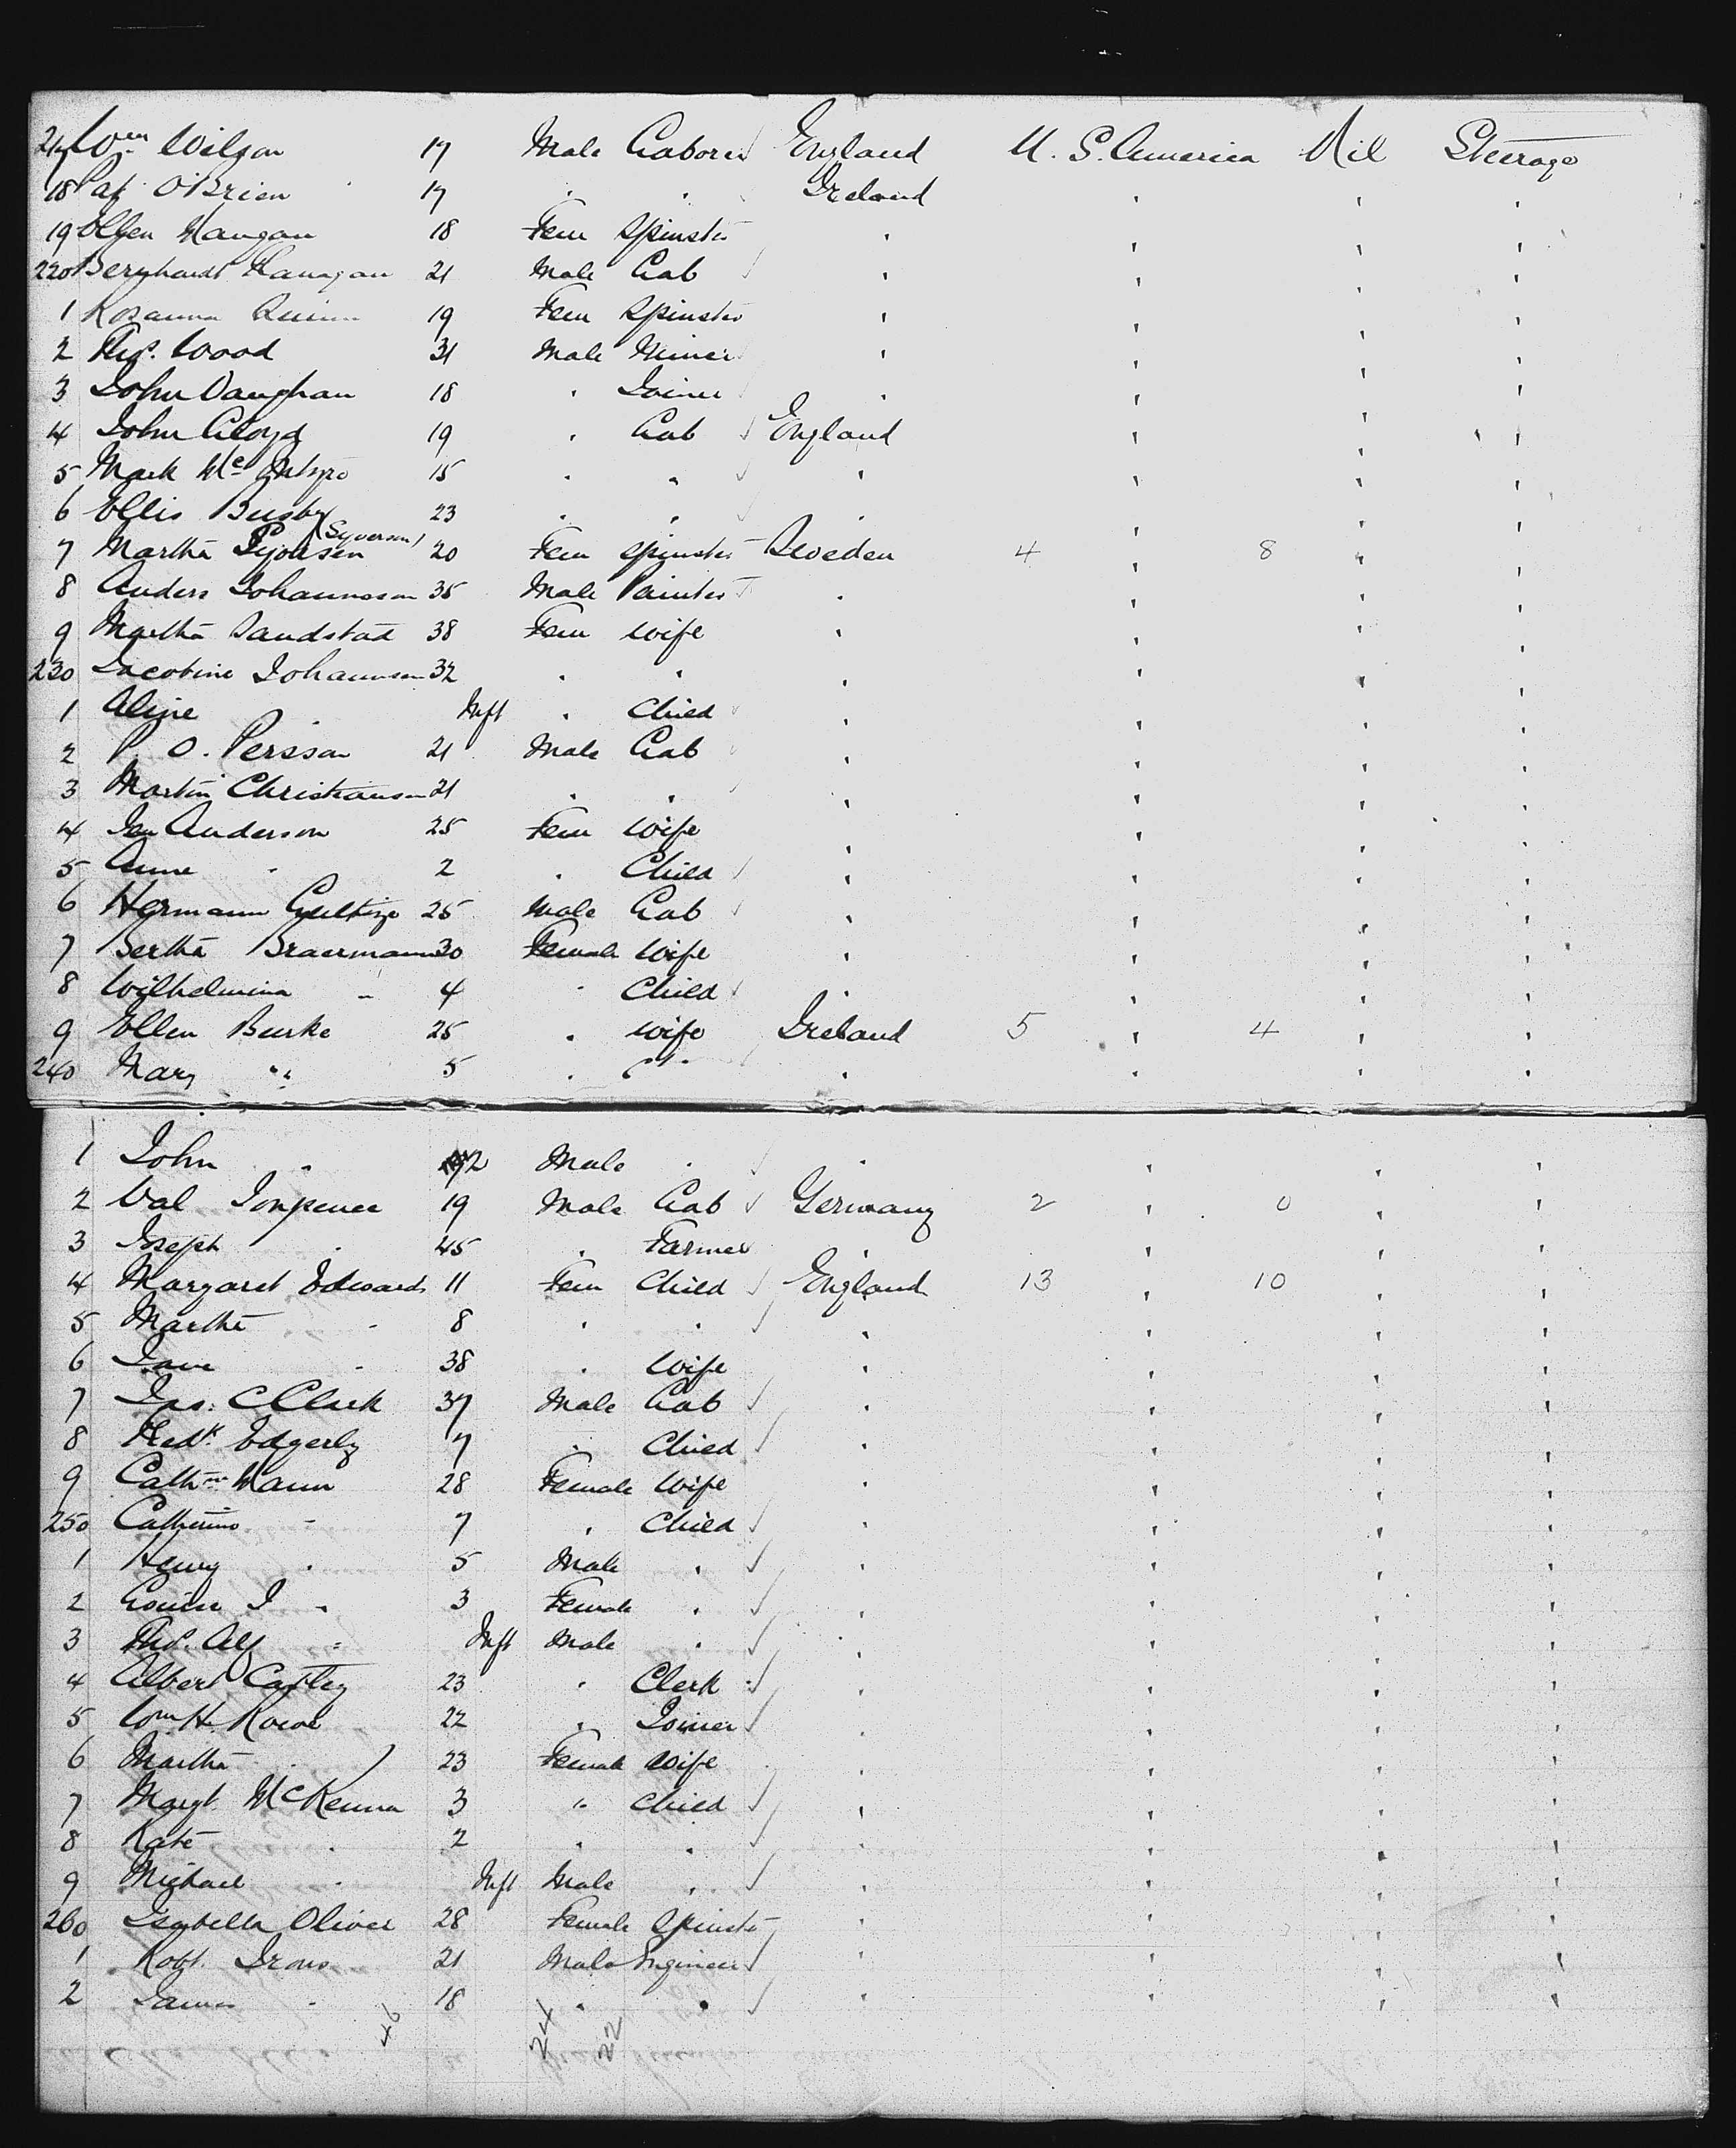 217 Wm Wilson 17 Male Laborer England U. S. America Nil Steerage
18 Pat O'Brien 17 " " Ireland " " "
19 Ellen Mangan 18 Fem Spinster " " " "
220 Bernhardt Flanagan 21 Male Lab " " " "
1 Rosanna Quinn 19 Fem Spinster " " " "
2 Thos. Wood 31 Male Miner " " " "
3 John Vaughan 18 " Joiner " " " "
4 John Lloyd 19 " Lab England " " "
5 Mark Mc 15 " " " " " "
6 Ellis Busby 23 " " " " " "
7 Martha (Syverson) 20 Fem Spinster Sweden 4 " 8 " "
8 Anders Johannsson 35 Male Painter " " " "
9 Martha Sandstad 38 Fem Wife " " " "
230 Jacobine Johannsen 32 " " " " " "
1 Aline " Inft " Child " " " "
2 P. O. Persson 21 Male Lab " " " "
3 Martin Christiansen 21 " " " " " "
4 Anderson 25 Fem Wife " " " "
5 Anne " 2 " Child " " " "
6 Hermann 25 Male Lab " " " "
7 Bertha Braermann 30 Female Wife " " " "
8 Wilhelmina " 4 " Child " " " "
9 Ellen Burke 25 " Wife Ireland 5 " 4 " "
240 Mary " 5 " C " " " " "
1 John " 2 Male " " " " "
2 Val 19 Male Lab Germany 2 " 0 " "
3 Joseph " 45 " Farmer " " " "
4 Margaret Edwards 11 Fem Child England 13 " 10 " "
5 Martha " 8 " " " " " "
6 Jane " 38 " Wife " " " "
7 Jas. C Clark 37 Male Lab " " " "
8 Fredk. Edgerly 7 " Child " " " "
9 Cathne Mann 28 Female Wife " " " "
250 Catherine " 7 " Child " " " "
1 Henry " 5 Male " " " " "
2 Louisa J " 3 Female " " " " "
3 Thos. Alf " Inft Male " " " " "
4 Albert Castley 23 " Clerk " " " "
5 Wm H. 22 " Joiner " " " "
6 Martha " 23 Female Wife " " " "
7 Margt. McKenna 3 " Child " " " "
8 Kate " 2 " " " " " "
9 Michael " Inft Male " " " " "
260 Isabella Oliver 28 Female Spinster " " " "
1 Robt. Irons 21 Male Engineer " " " "
2 James " 18 " " " " " "
46 24 22